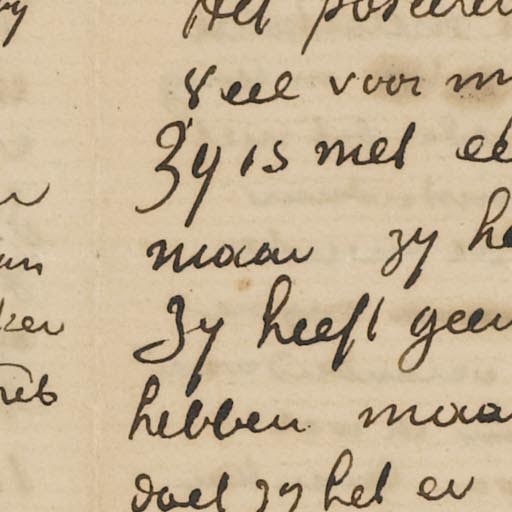 Het poseeren
veel voor m
Zy is met ee
maar zy he
Zy heeft geen
hebben maar
doet zy het en